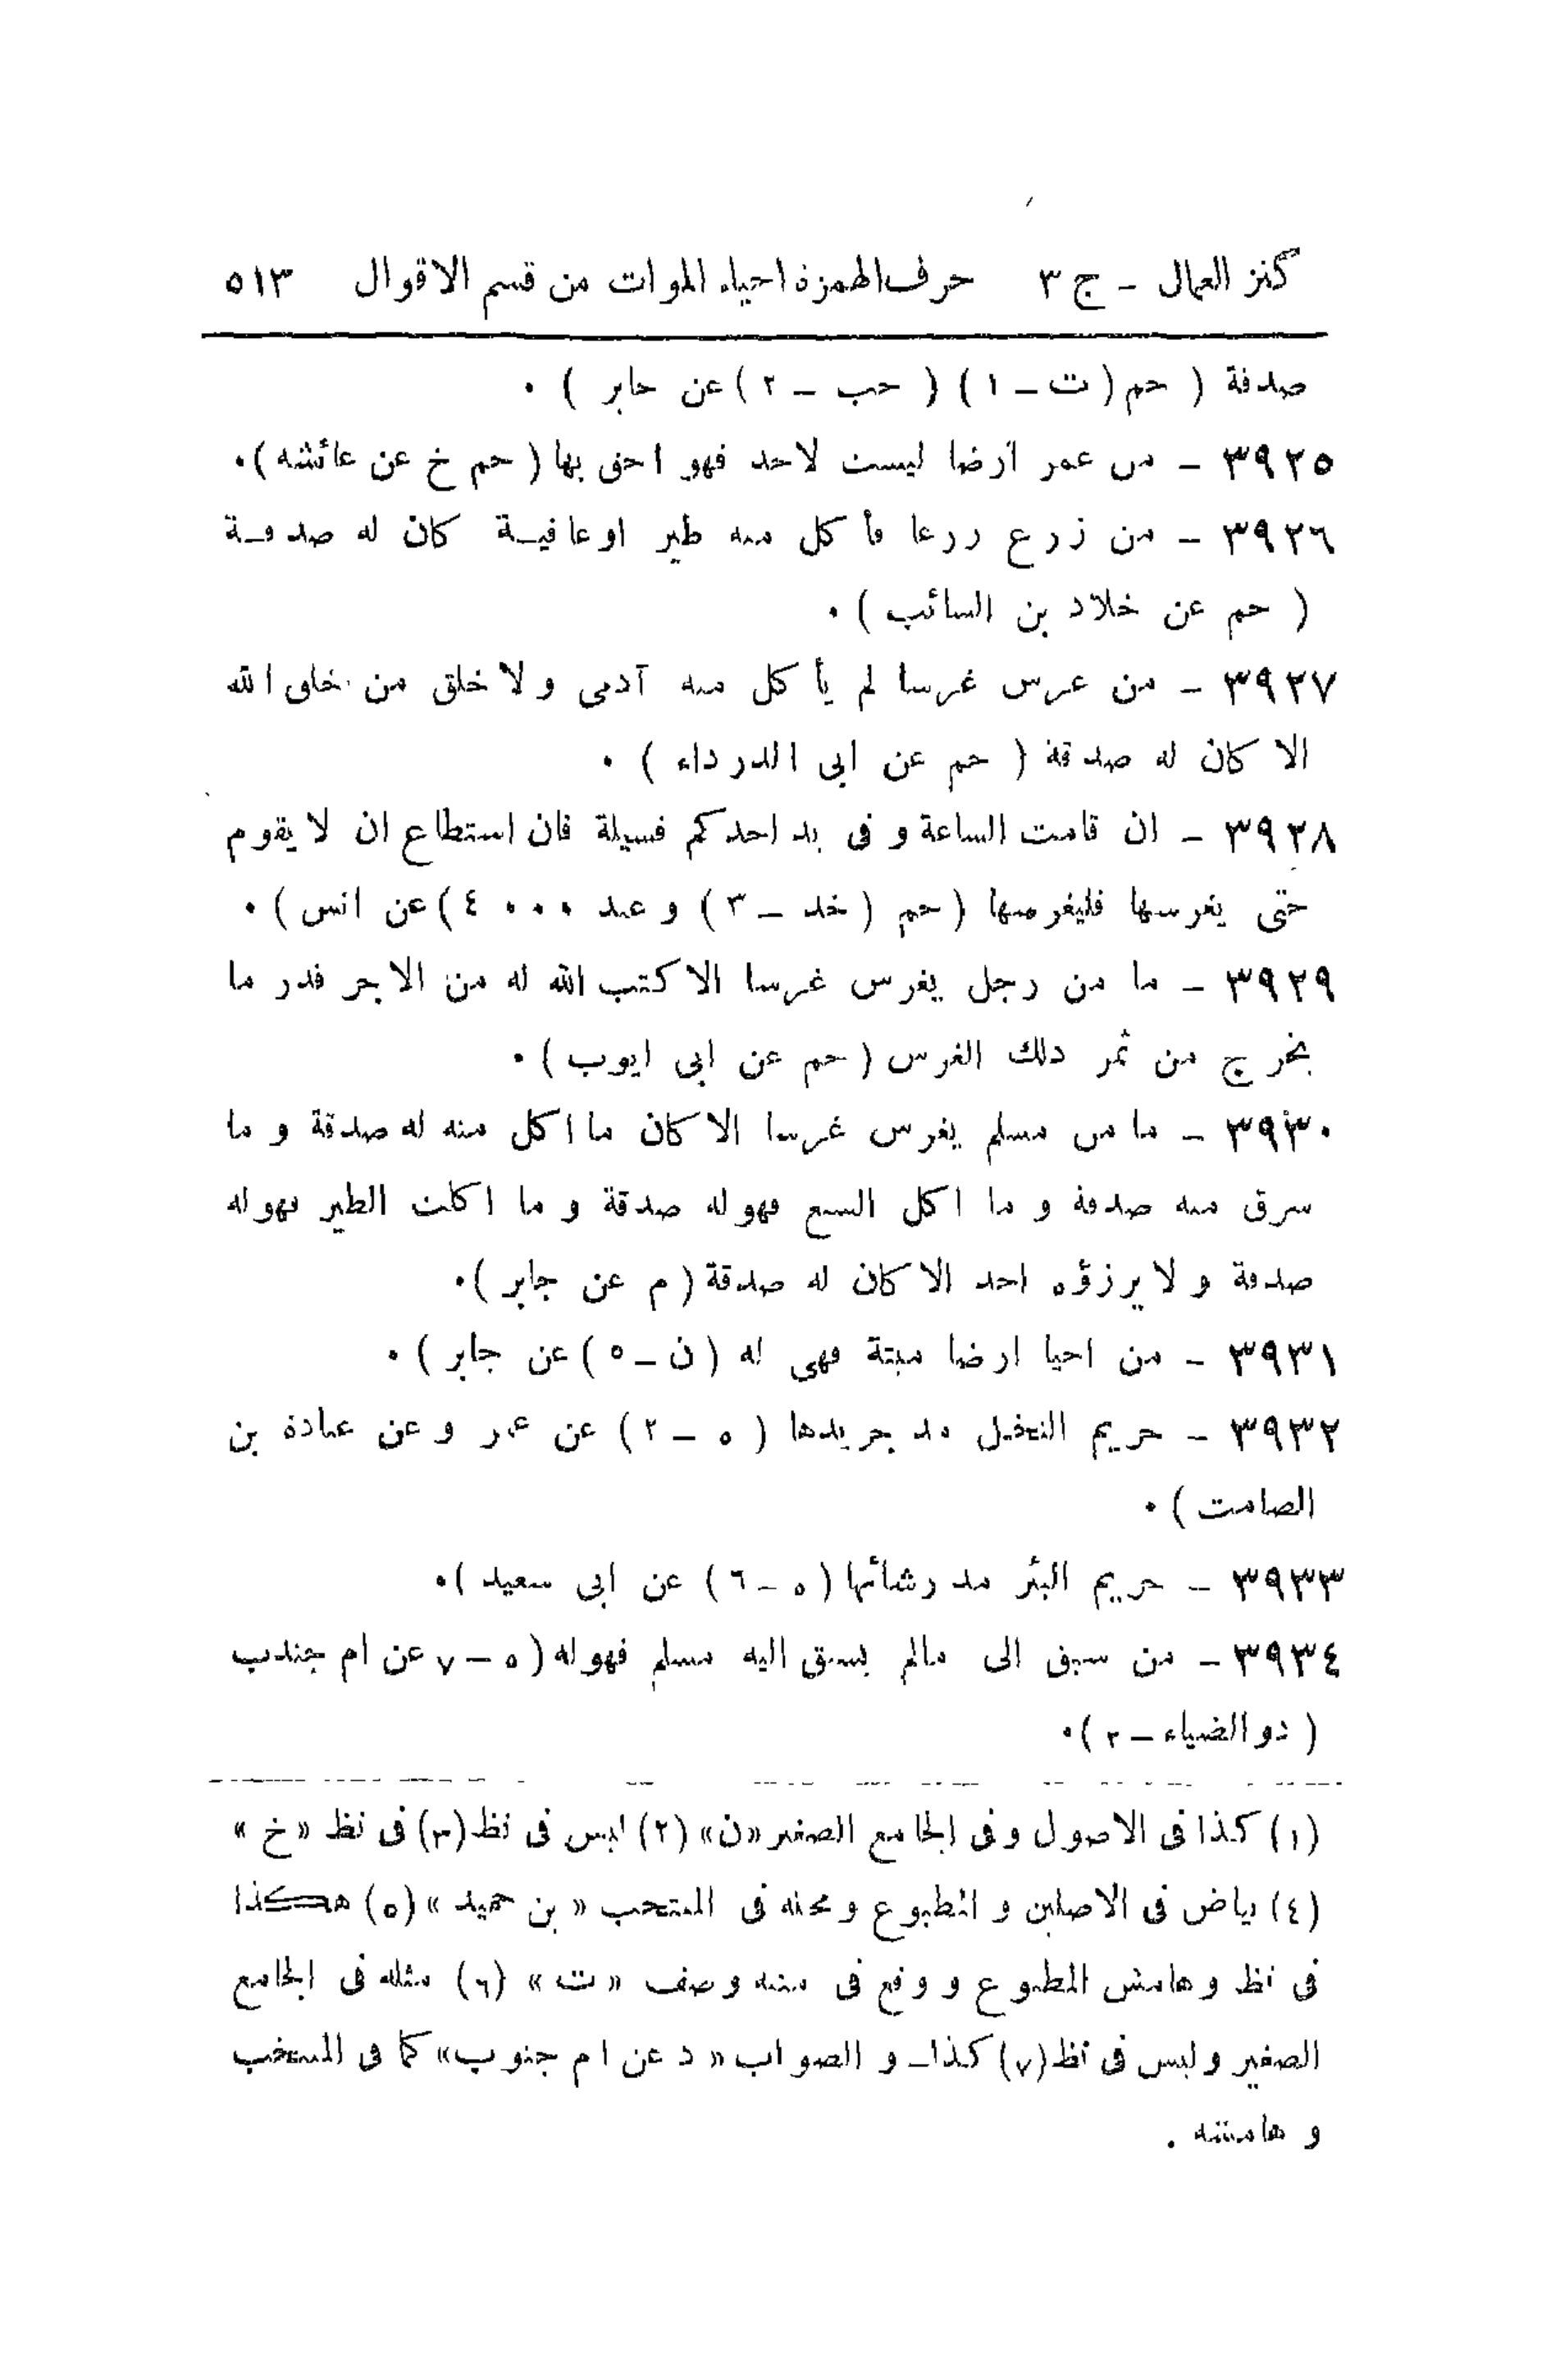 كنز العمال - ج ٣ حرف الهمزة احياء الموات من قسم الاقوال ٥١٣
صدقة ( حم ( ت - ١ ) ( حب - ٢ ) عن جابر ) ٠
٣٩٢٥ - من عمر ارضا ليست لاحد فهو احق بها ( حم خ عن عائشه ) ٠
٣٩٢٦ - من زرع زرعا فأكل منه طير او عافية كان له صدقة
( حم عن خلاد بن السائب ) ٠
٣٩٢٧ - من غرس غرسا لم يأكل منه آدمى و لا خلق من خلق الله
الا كان له صدقة ( حم عن ابى الدرداء ) ٠
٣٩٢٨ - ان قامت الساعة و فى يد احدكم فسيلة فان استطاع ان لا يقوم
حتى يغرسها فليغرسها ( حم ( خد - ٣ ) و عبد ٠٠٠ ٤ ) عن انس ) ٠
٣٩٢٩ - ما من رجل يغرس غرسا الا كتب الله له من الاجر قدر ما
يخرج من ثمر ذلك الغرس ( حم عن ابى ايوب ) ٠
٣٩٣٠ - ما من مسلم يغرس غرسا الا كان ما اكل منه له صدقة و ما
سرق منه صدقة و ما اكل السبع فهو له صدقة و ما اكلت الطير فهو له
صدقة و لا يرزؤه احد الا كان له صدقة ( م عن جابر ) ٠
٣٩٣١ - من احيا ارضا ميتة فهى له ( ن - ٥ ) عن جابر ) ٠
٣٩٣٢ - حريم النخل مد جريدها ( ه - ٢ ) عن عمر و عن عبادة بن
الصامت ) ٠
٣٩٣٣ - حريم البئر مد رشائها ( ه - ٦ ) عن ابى سعيد ) ٠
٣٩٣٤ - من سبق الى مالم يسبق اليه مسلم فهو له ( ه - ٧ عن ام جندب
( دو الضياء - ٢ ) ٠
(١) كذا فى الاصول و فى الجامع الصغير «ن» (٢) ليس فى نظ (٣) فى نظ « خ »
(٤) بياض فى الاصلين و المطبوع و محله فى المنتخب « بن حميد » (٥) هكذا
فى نظ و هامش المطبوع و وقع فى متنه وصف « ت » (٦) مثله فى الجامع
الصغير و ليس فى نظ (٧) كذا - و الصواب « د عن ام جنوب » كما فى المنتخب
و هامشه .